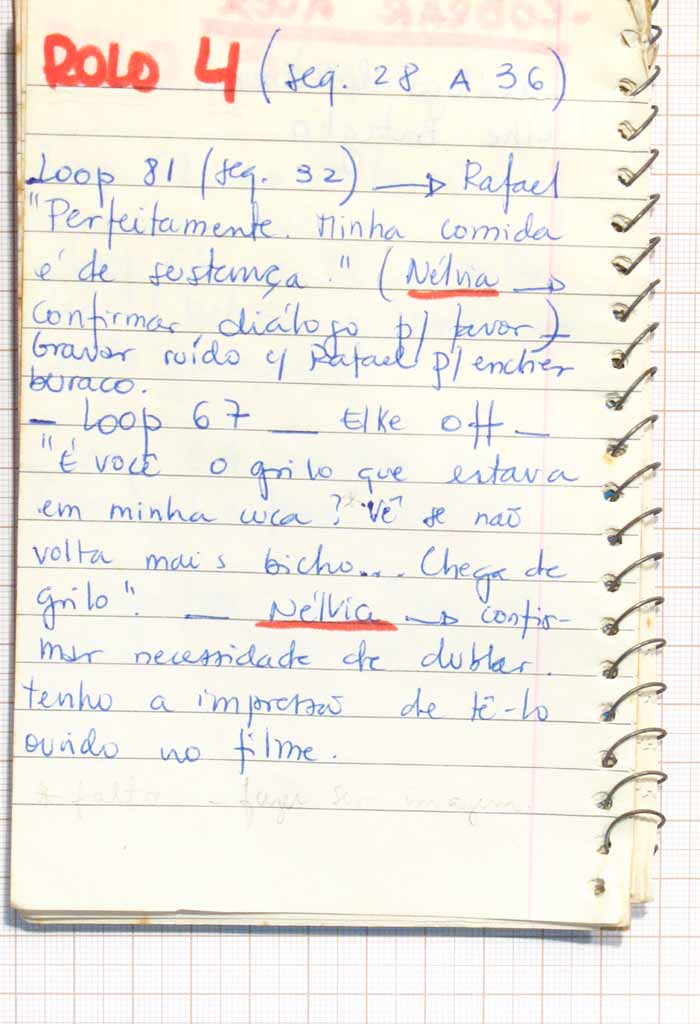 ROLO 4 (seq. 28 A 36)
Loop 81 (seq. 32) → Rafael
"Perfeitamente. Minha comida
é de sustança." (Nélvia →
confirmar diálogo p/ favor)
Gravar ruído c/ Rafael p/ encher
buraco.
- Loop 67 — Elke off -
"É você o grilo que estava
em minha cuca? *Vê se não
volta mais bicho... Chega de
grilo". — Nélvia → confir-
mar necessidade de dublar.
tenho a impressão de tê-lo
ouvido no filme.